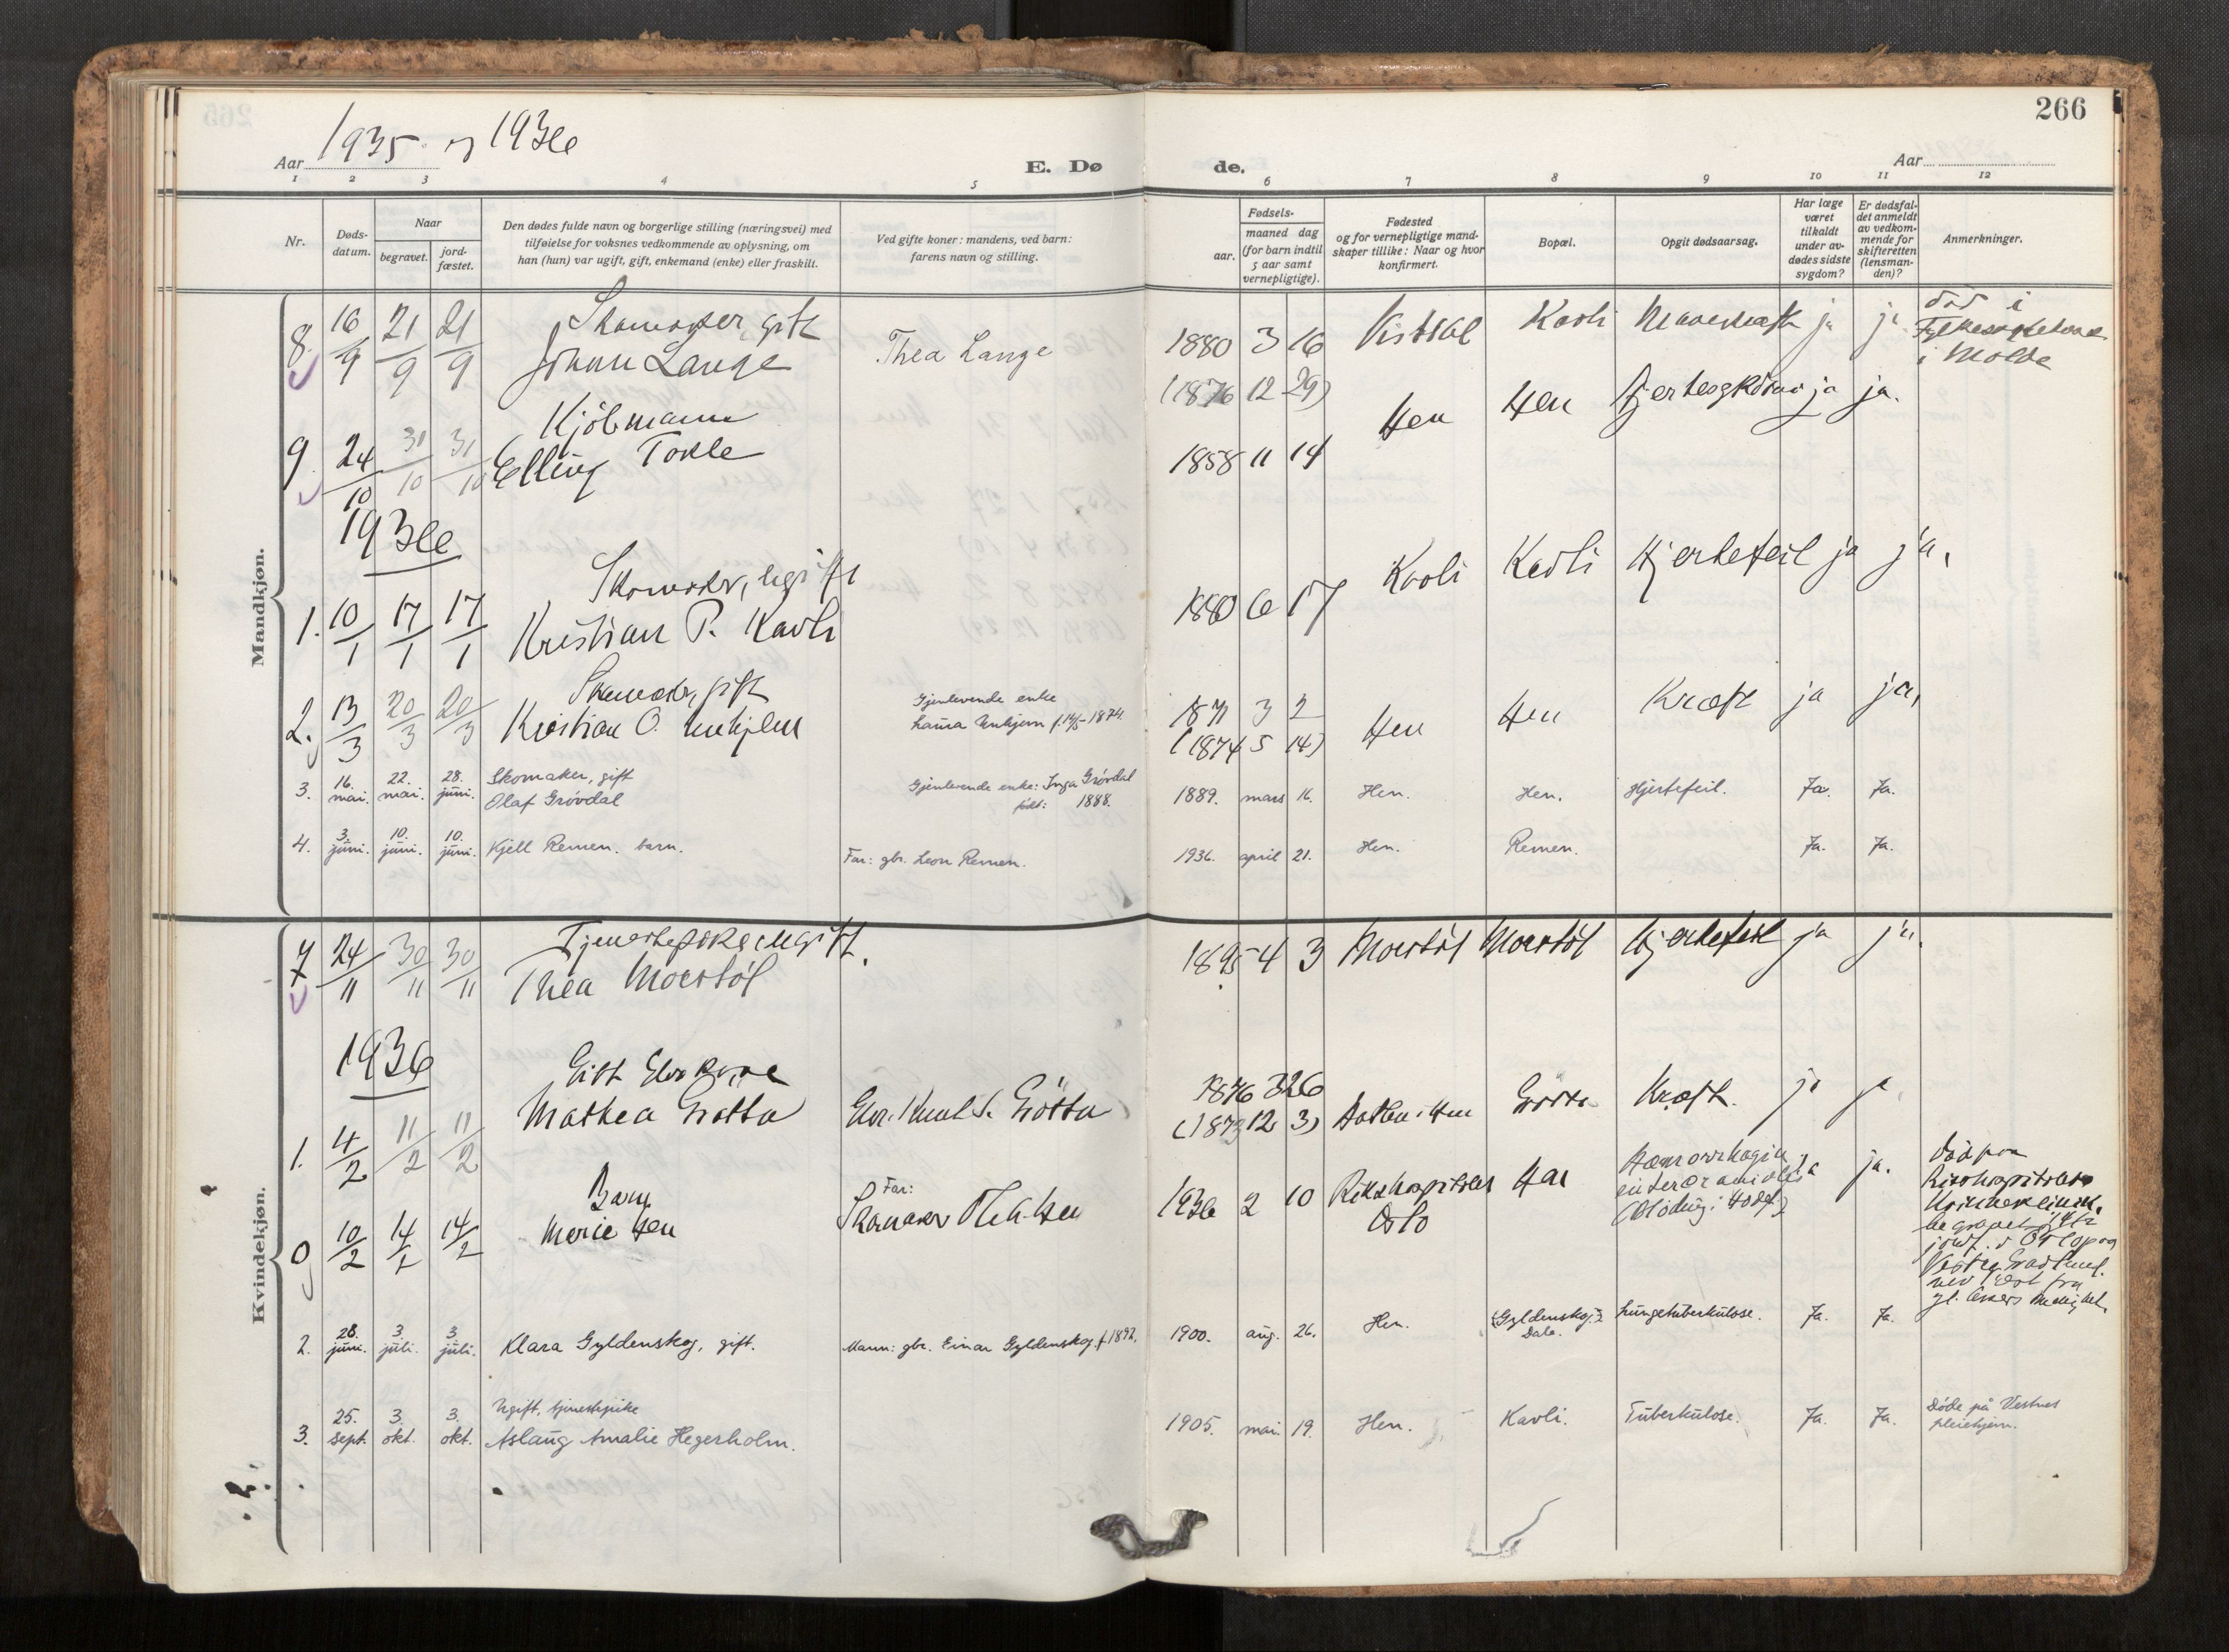 266
Aar 1935 og 1936
E. Døde.
Aar
1 2 3 4 5 6 7 8 9 10 11 12
Nr.
Døds-
datum.
Naar
begravet.
jord-
fæstet.
Den dødes fulde navn og borgerlige stilling (næringsvei) med
tilføielse for voksnes vedkommende av oplysning, om
han (hun) var ugift, gift, enkemand (enke) eller fraskilt.
Ved gifte koner: mandens, ved barn:
farens navn og stilling.
Fødsels-
aar.
maaned dag
(for barn indtil
5 aar samt
vernepligtige).
Fødested
og for vernepligtige mand-
skaper tillike: Naar og hvor
konfirmert.
Bopæl.
Opgit dødsaarsag.
Har læge
været
tilkaldt
under av-
dødes sidste
sygdom?
Er dødsfal-
det anmeldt
av vedkom-
mende for
skifteretten
(lensman-
den)?
Anmerkninger.
Mandkjøn.
8. 16/9 21/9 21/9 Skomaker, gift
Johan Lange
Thea Lange
1880 3 16
(1876 12 29)
Vistdal Kavli Mavekræft ja ja
død i
Fylkessykehuset
i Molde
9. 24/10 31/10 31/10 Kjøbmann
Elling Tokle
1858 11 14
Hen Hen ja ja.
1936
1. 10/1 17/1 17/1 Skomaker, ugift
Kristian P. Kavli
1880 6 17 Kavli Kavli Hjertefeil ja ja,
2. 13/3 20/3 20/3 Skomaker, gift
Kristian O. Unhjem
Gjenlevende enke
Laura Unhjem f. 14/5-1874.
1871 3 2
(1874 5 14)
Hen Hen Kræft ja ja,
3. 16. mai. 22. mai. 28. juni. Skomaker, gift
Olaf Grøvdal
Gjenlevende enke: Inga Grövdal
født: 1888.
1889. mars 16. Hen. Hen. Hjertefeil. Ja. Ja.
4. 3. juni. 10. juni. 10. juni. Kjell Remen. barn.
Far: gbr. Leon Remen.
1936. april 21. Hen. Remen. Ja. Ja.
Kvindekjøn.
7 24/11 30/11 30/11 Tjenestepike, ugift.
Thea Morstøl
1895 4 3 Morstøl Morstøl Hjertefeil ja ja.
1936
1. 4/2 11/2 11/2 Gift
Mathea Grøtta
Gbr. Knut S. Grøtta
1876 3 26
(1873 12 3)
Grøtta Kræft. ja ja
0 10/2 14/2 14/2 Barn
Marie Hen
Far:
Skomaker Hen
1936 2 10 Rikshospitalet
Oslo
Hen
Hæmorrhagia
intracranialis
(Blødning i Hodet)
ja ja.
Død paa
Rikshospitalets
Kvinneklinik.
begravet 14/2
jordf. i Oslo paa
Vestre Gravlund.
2. 28. juni. 3. juli. 3. juli. Klara Gyldenskog, gift.
Mann: gbr. Einar Gyldenskog f. 1892.
1900. aug. 26. Hen. (Gyldenskog.)
Dale.
Lungetuberkulose. Ja. Ja.
3. 25. sept. 3. okt. 3. okt. Ugift, tjenestepike
Aslaug Amalie Hegerholm.
1905. mai. 19. Hen. Kavli. Tuberkulose. Ja. Ja.
Døde på Vestnes
pleiehjem.